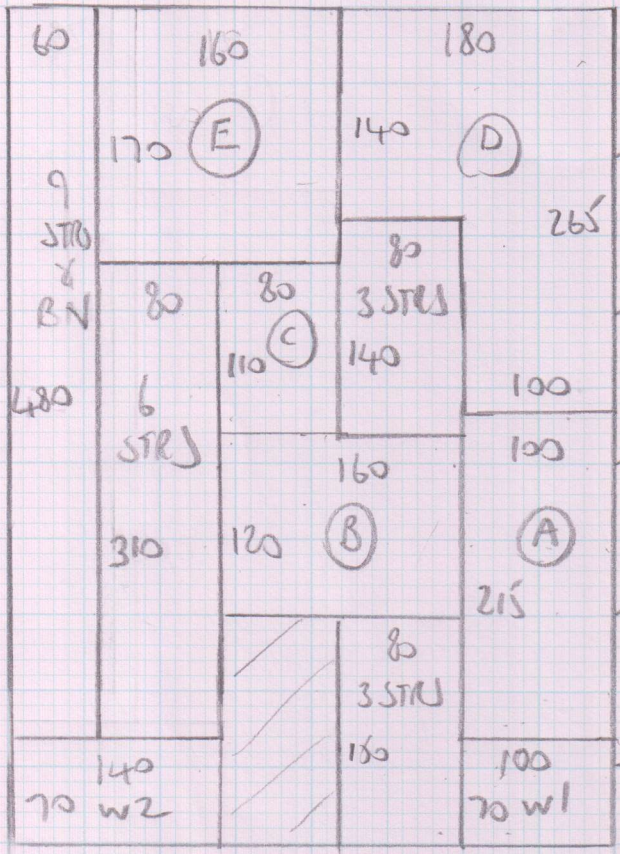 60
160
180
170
E
140
D
9
STRJ
&
BN
265
80
80
80
3 STRJ
C
110
140
480
6
STRJ
100
100
160
310
120
B
A
215
80
3 STRJ
150
140
70 W2
100
70 W1